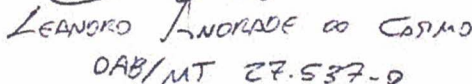 LEANDRO ANDRADE DO COSMO
OAB/MT 27.537-O